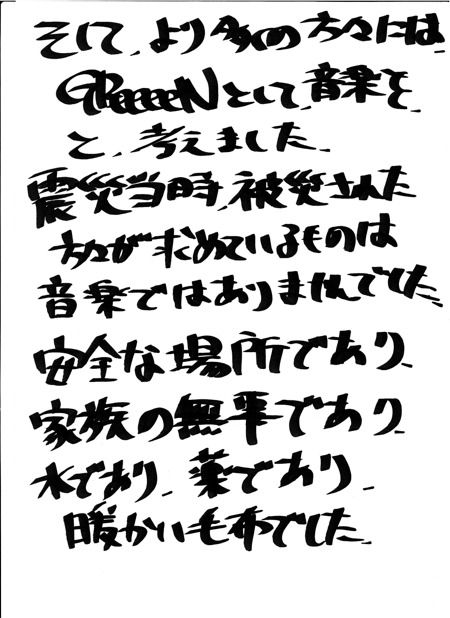 そして、より多くの方々には、
GReeeeNとして、音楽を、
と、考えました。
震災当時、被災された
方々が求めているものは
音楽ではありませんでした。
安全な場所であり、
家族の無事であり、
水であり、薬であり、
暖かい毛布でした。